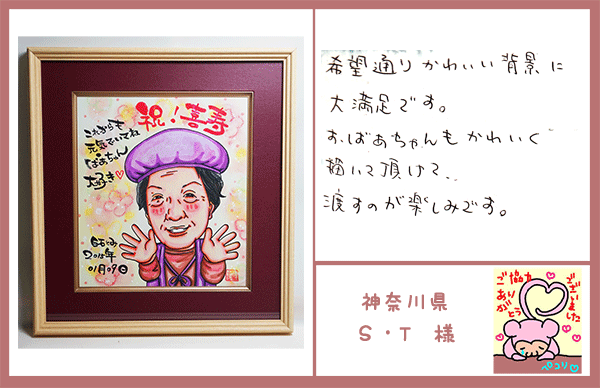 祝！喜寿
これからも
元気でいてね
ばぁちゃん
大好き
2015年
01月09日
希望通りかわいい背景に
大満足です。
おばあちゃんもかわいく
描いて頂けて、
渡すのが楽しみです。
神奈川県
S・T 様
ご協力
ありがとう
ございました
ペコリ